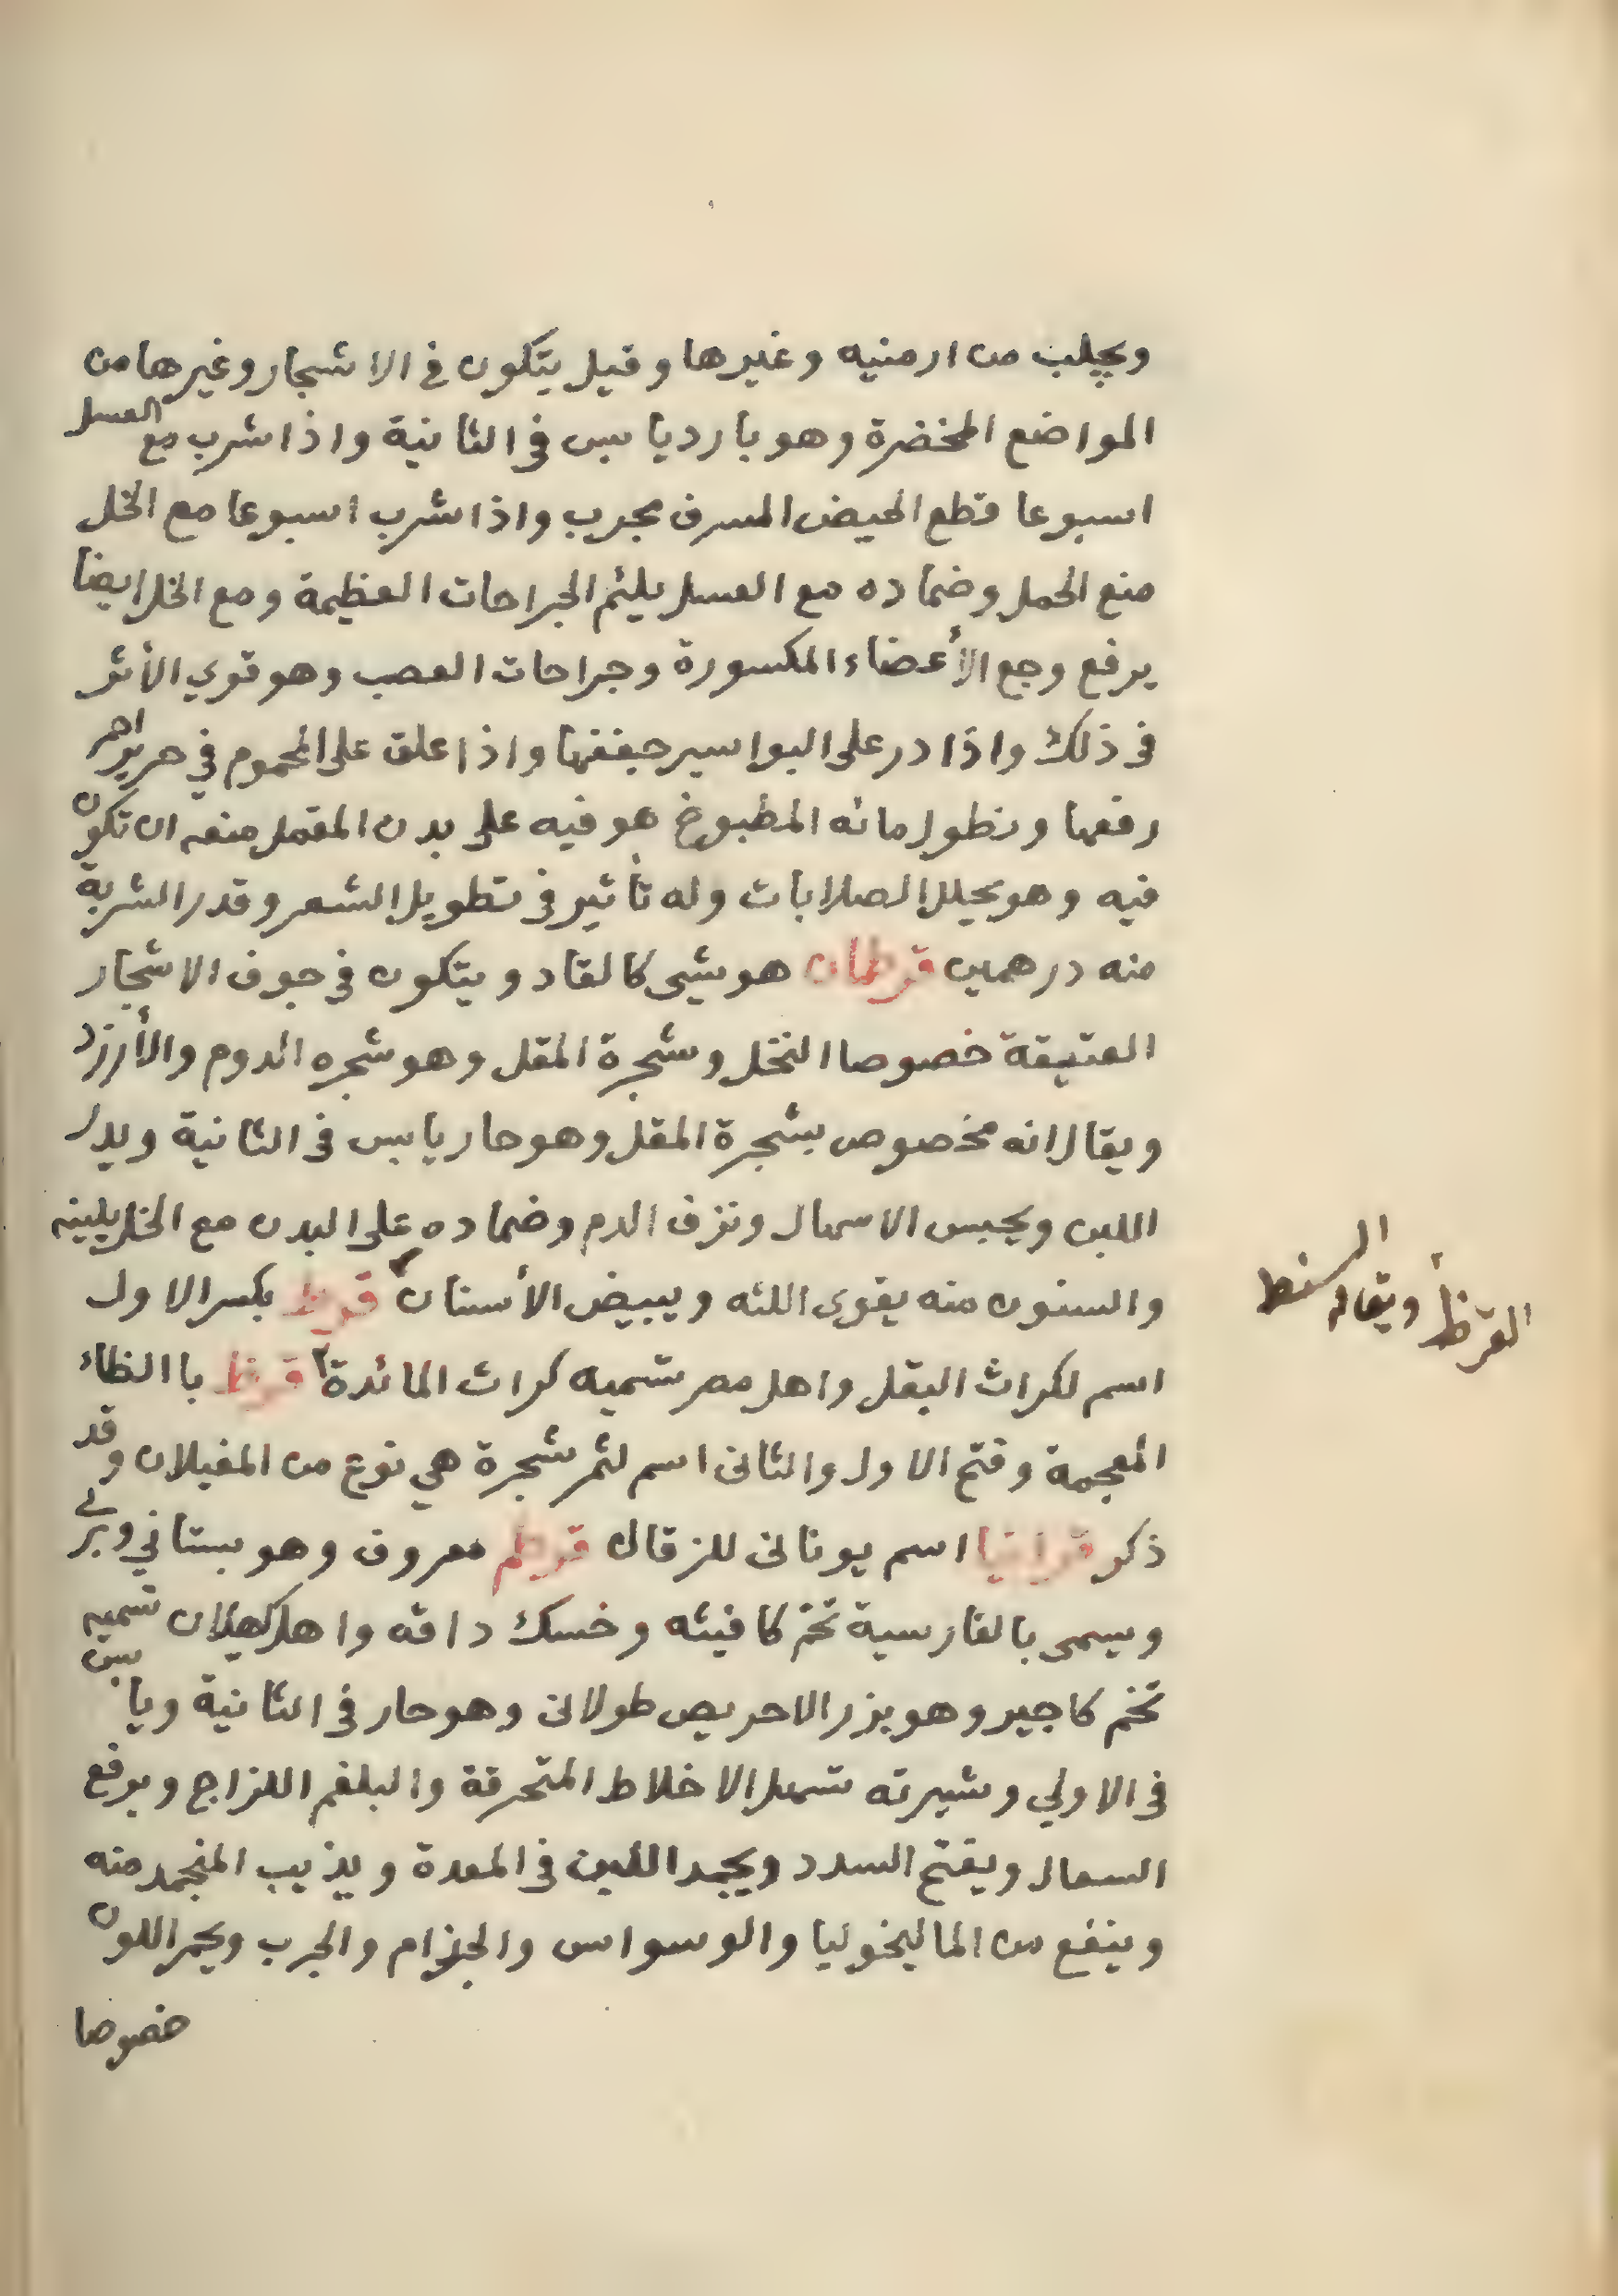 ويجلب من ارمنيه وغيرها وقيل يتكون في الاشجار وغيرها من
المواضع المخضرة وهو بارد يابس في الثانية واذا شرب مع العسل
اسبوعا قطع الحيض المسرف مجرب واذا شرب اسبوعا مع الخل
منع الحمل وضماده مع العسل يلئم الجراحات العظيمة ومع الخل ايضا
يرفع وجع الأعضاء المكسورة وجراحات العصب وهو قوي الأثر
في ذلك واذا در على البواسير جففها واذا علق على المحموم في حرير احمر
رفعها ونطول مائه المطبوخ هو فيه على بدن المقمل منعه ان تكون
فيه وهو يحيلل الصلابات وله تأثير في تطويل الشعر وقدر الشربة
منه درهمين قرطمان هو شيى كالقاد ويتكون في جوف الاشجار
العتيقة خصوصا النخل وشجرة المقل وهو شجره الدوم والأرزد
ويقال انه مخصوص بشجرة المقل وهو حار يابس في الثانية ويدر
اللبن ويحبس الاسهال ونزف الدم وضماده على البدن مع الخل يلينه
والسنون منه يقوى اللثه ويبيض الأسنان قرط بكسر الاول
اسم لكراث البقل واهل مصر تسميه كراث المائدة قرظ باالظاء
المعجمة وفتح الاول والثانى اسم لثمر شجرة هي نوع من المغيلان وقد
ذكر قرانيا اسم يونانى للزقال قرطم معروف وهو بستاني وبري
ويسمى بالفارسية تخم كافيثه وخسك دافه واهل كهيلان تسميه
تخم كاجير وهو بزر الاحريص طولانى وهو حار في الثانية ويابس
في الاولي وشيرته تسهل الاخلاط المتحرقة والبلغم اللزاج ويرفع
السعال ويفتح السدد ويجمد اللبن في المعدة ويذيب المنجمد منه
وينفع من الماليخوليا والوسواس والجذام والجرب ويحمر اللون
خصوصا
القرظ ويقال له السنط